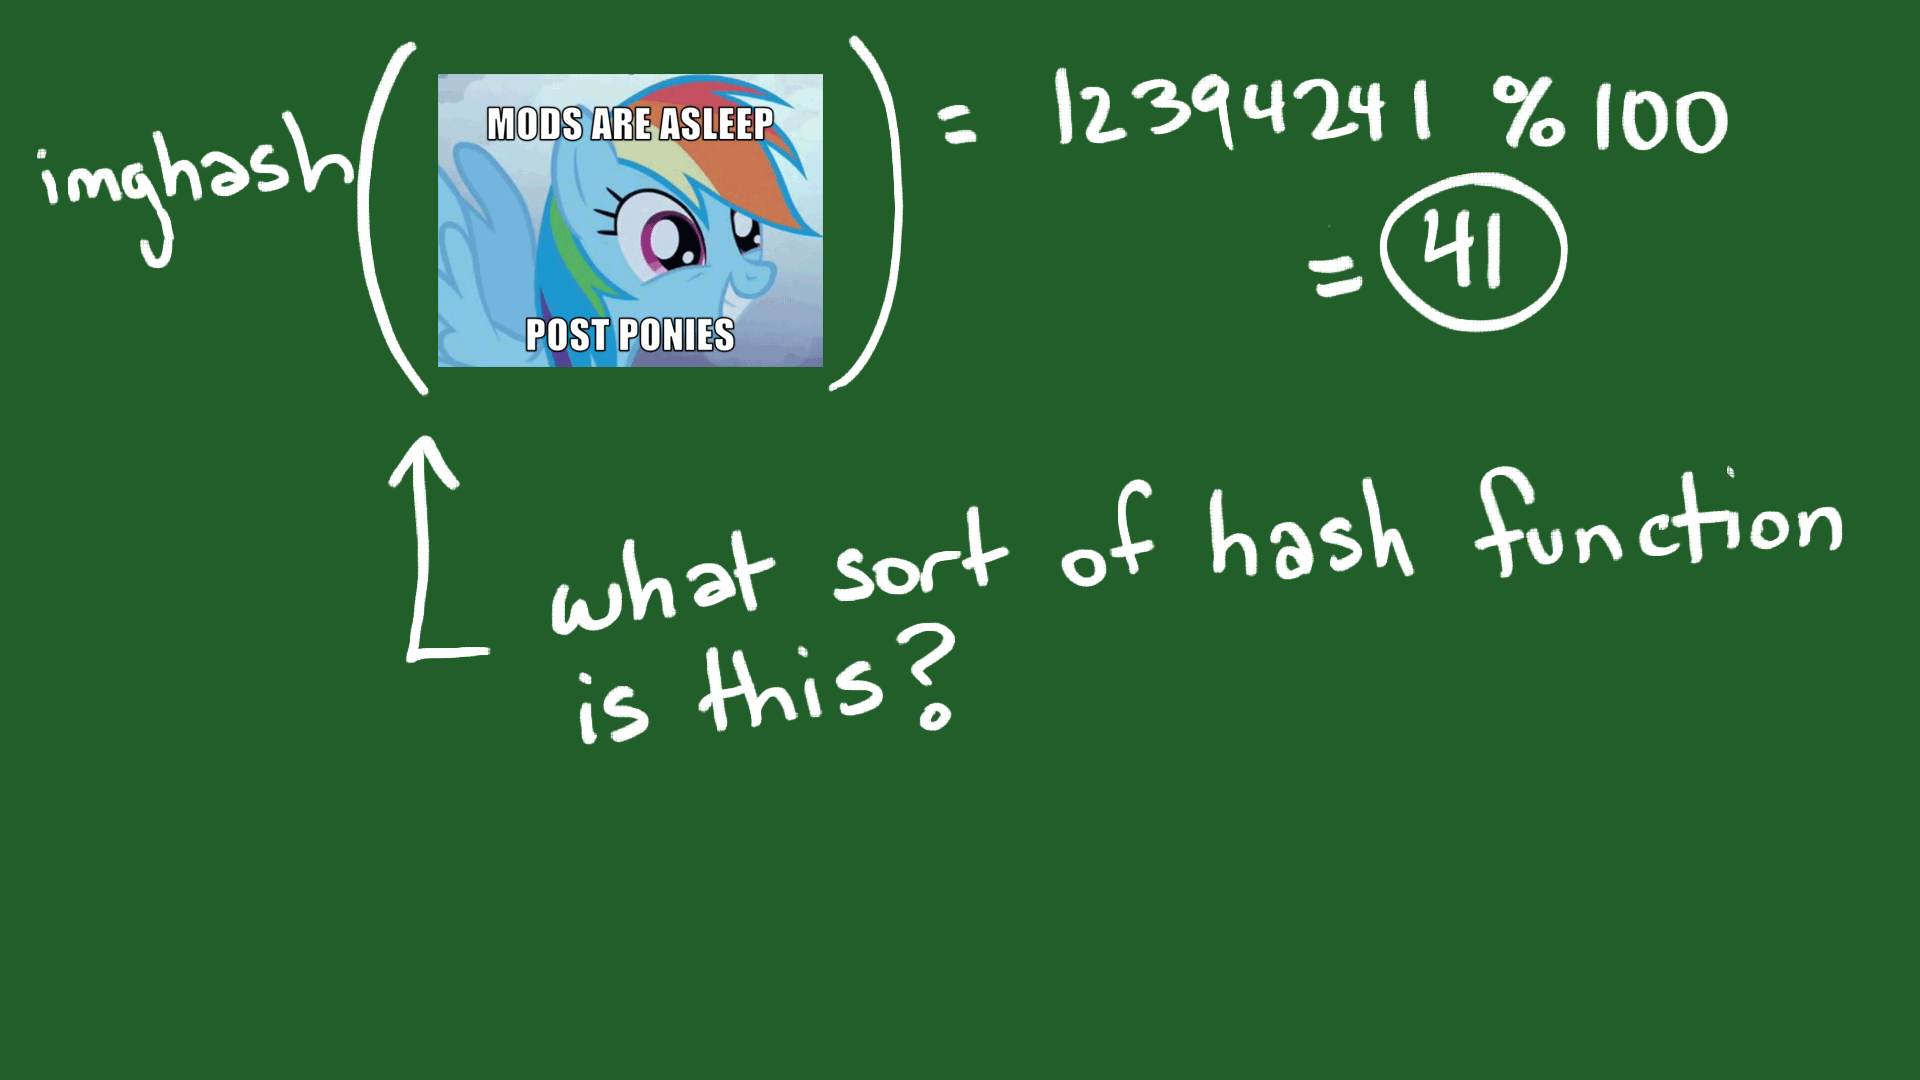 imghash( MODS ARE ASLEEP POST PONIES ) = 12394241 % 100
= 41
what sort of hash function
is this?